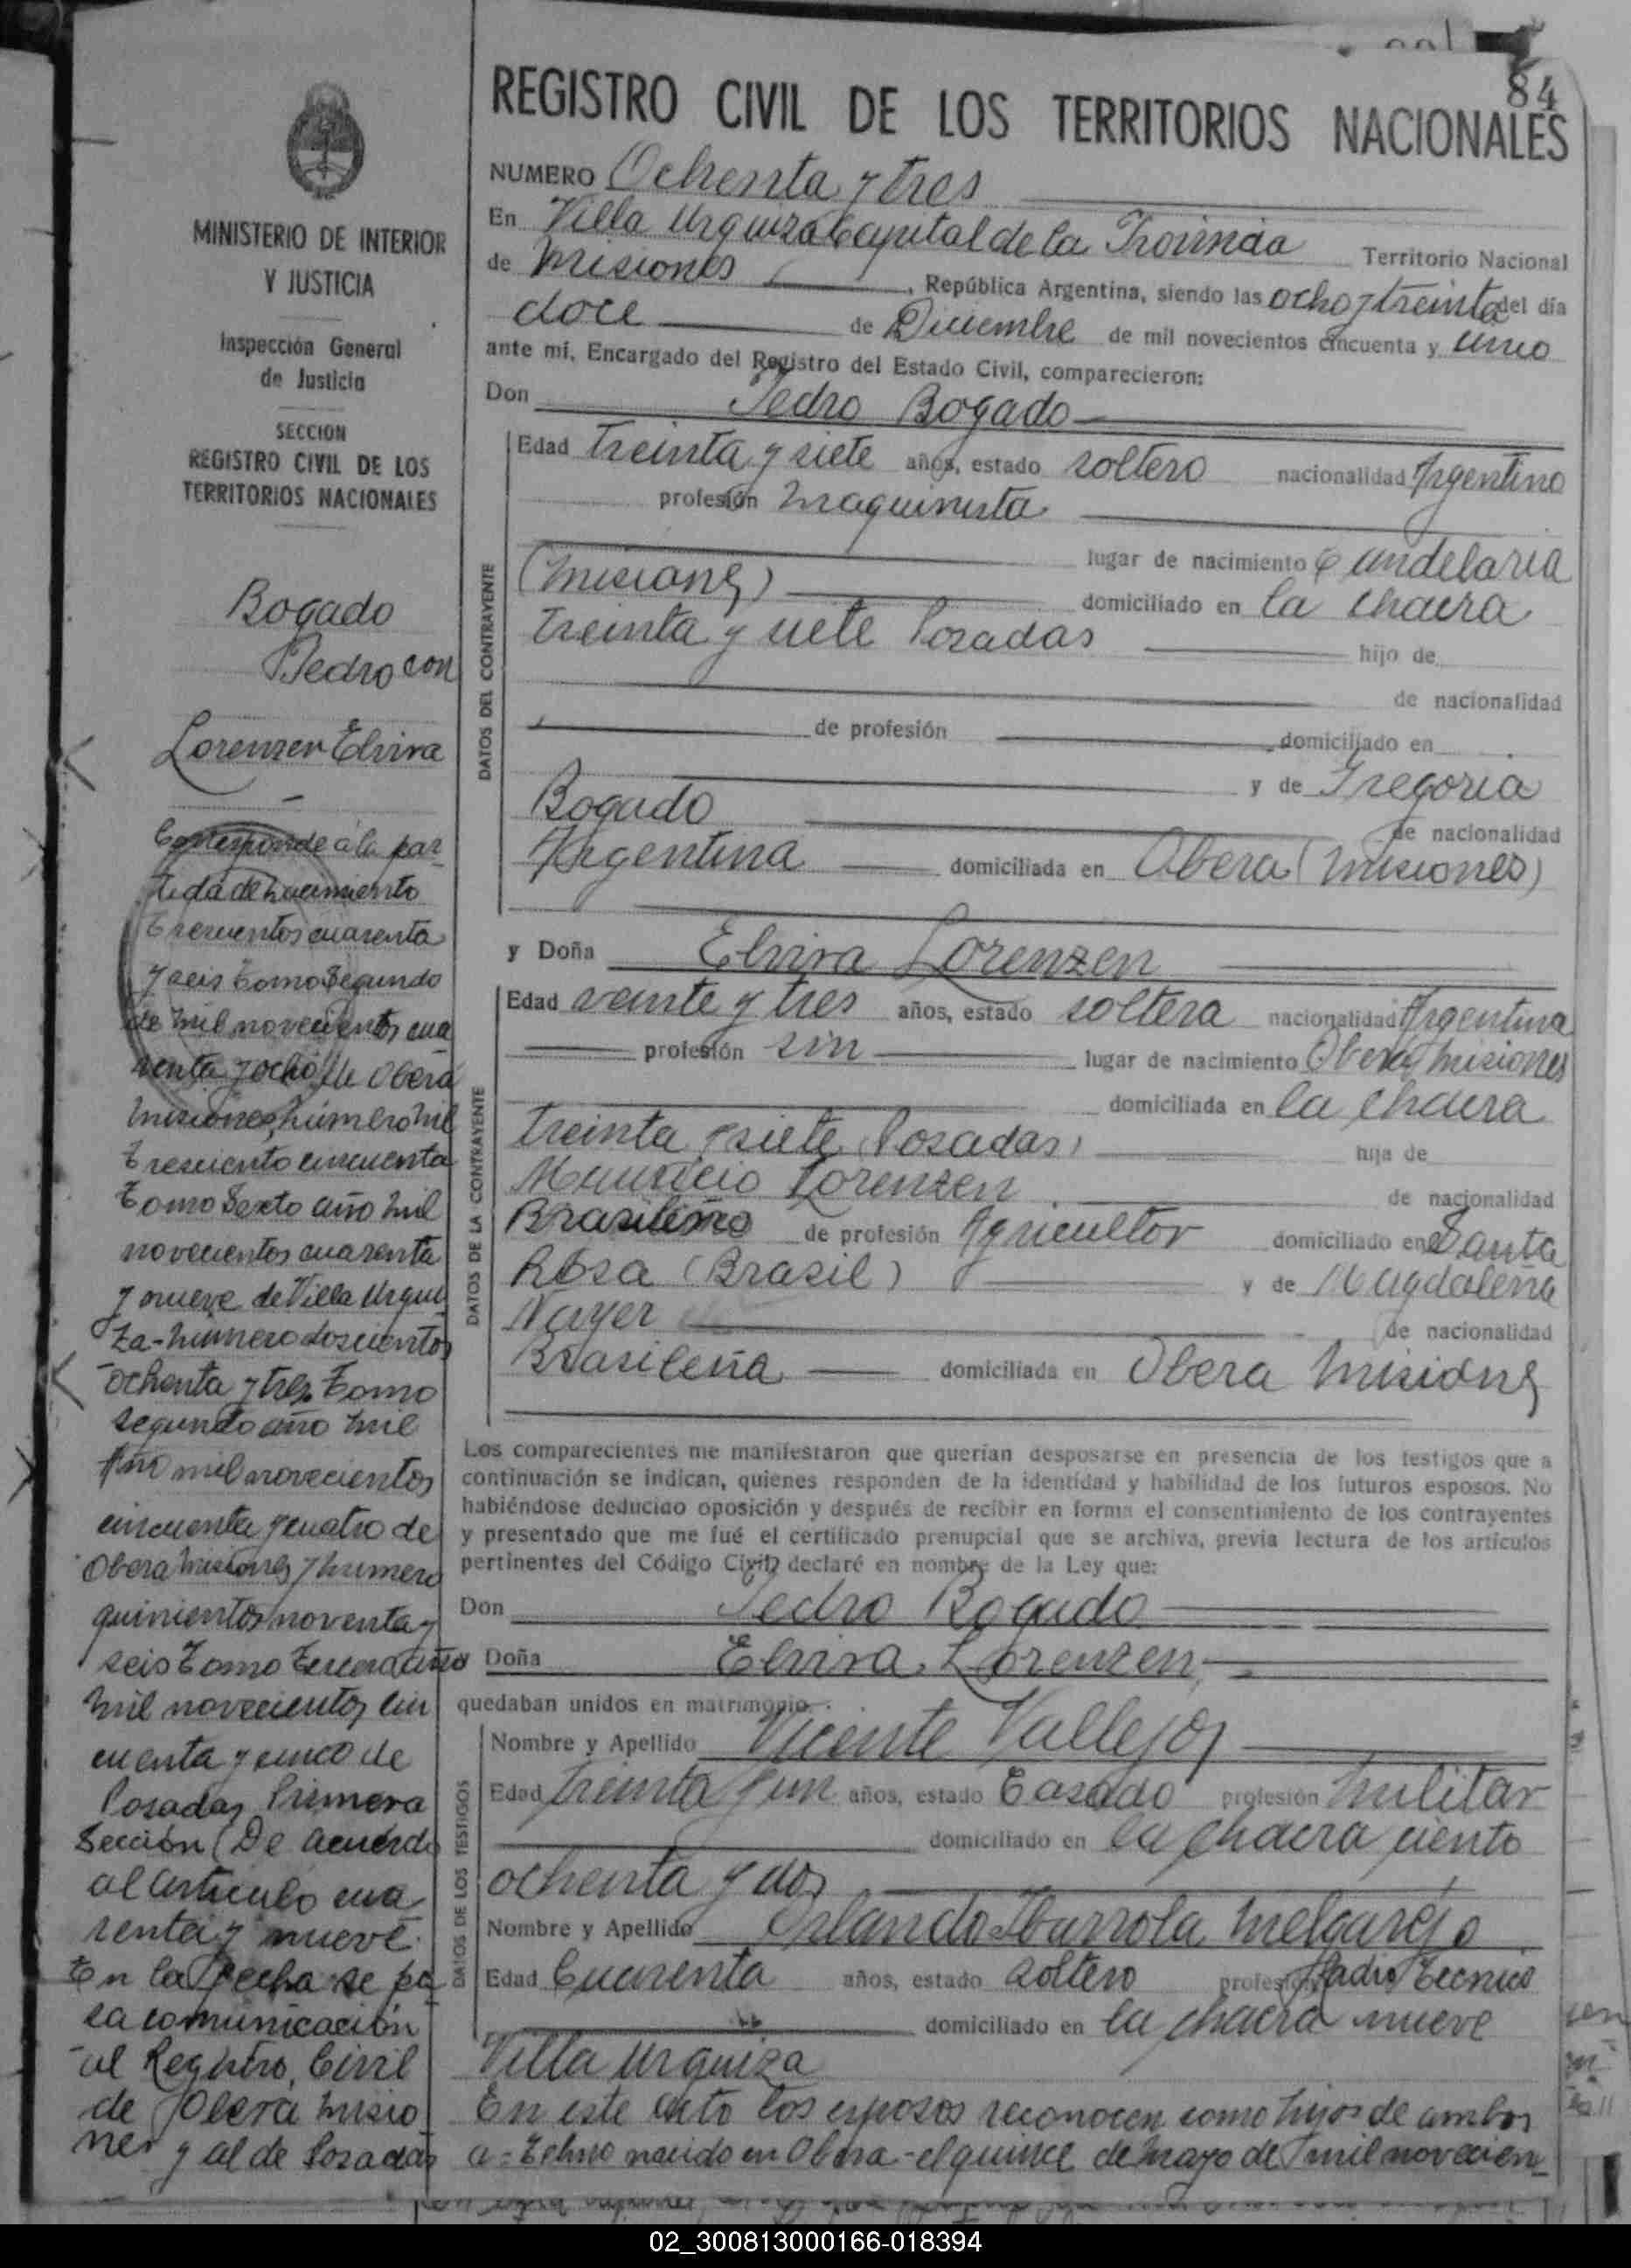 84
REGISTRO CIVIL DE LOS TERRITORIOS NACIONALES
MINISTERIO DE INTERIOR
Y JUSTICIA
Inspección General
de Justicia
SECCION
REGISTRO CIVIL DE LOS
TERRITORIOS NACIONALES
Bogado
Pedro con
Lorenzen Elvira
Corresponde a la par
tida de nacimiento
trescientos cuarenta
y seis tomo segundo
de mil novecientos cua
renta y ocho de Obera
Misiones, número mil
tresciento cincuenta
tomo sexto año mil
novecientos cuarenta
y nueve de Villa Urqui
za - número doscientos
ochenta y tres tomo
segundo año mil
año mil novecientos
cincuenta y cuatro de
Obera Misiones y número
quinientos noventa y
seis tomo tercero año
mil novecientos cin
cuenta y cinco de
Posadas Primera
Sección (De acuerdo
al artículo cua
renta y nueve.
En la fecha se pa
sa comunicación
al Registro Civil
de Obera Misio
nes y al de Posadas
NUMERO Ochenta y tres
En Villa Urquiza Capital de la Provincia Territorio Nacional
de Misiones, República Argentina, siendo las ocho y treinta del día
doce de Diciembre de mil novecientos cincuenta y cinco
ante mí, Encargado del Registro del Estado Civil, comparecieron:
Don Pedro Bogado
DATOS DEL CONTRAYENTE
Edad treinta y siete años, estado soltero nacionalidad Argentino
profesión maquinista
lugar de nacimiento Candelaria
(Misiones) domiciliado en la chacra
treinta y siete Posadas hijo de
de nacionalidad
de profesión domiciliado en
y de Gregoria
Bogado de nacionalidad
Argentina domiciliada en Obera (Misiones)
y Doña Elvira Lorenzen
DATOS DE LA CONTRAYENTE
Edad veinte y tres años, estado soltera nacionalidad Argentina
profesión sin lugar de nacimiento Obera Misiones
domiciliada en la chacra
treinta y siete (Posadas) hija de
Mauricio Lorenzen de nacionalidad
Brasileño de profesión Agricultor domiciliado en Santa
Rosa (Brasil) y de Magdalena
Nayer de nacionalidad
Brasileña domiciliada en Obera Misiones
Los comparecientes me manifestaron que querían desposarse en presencia de los testigos que a
continuación se indican, quienes responden de la identidad y habilidad de los futuros esposos. No
habiéndose deducido oposición y después de recibir en forma el consentimiento de los contrayentes
y presentado que me fué el certificado prenupcial que se archiva, previa lectura de los artículos
pertinentes del Código Civil, declaré en nombre de la Ley que:
Don Pedro Bogado
Doña Elvira Lorenzen,
quedaban unidos en matrimonio.
DATOS DE LOS TESTIGOS
Nombre y Apellido Vicente Vallejos
Edad treinta y un años, estado Casado profesión militar
domiciliado en la chacra ciento
ochenta y dos
Nombre y Apellido Orlando Ibarrola Melgarejo
Edad Cuarenta años, estado soltero profesión Radio Tecnico
domiciliado en la chacra nueve
Villa Urquiza
En este acto los esposos reconocen como hijos de ambos
a = Telmo nacido en Obera - el quince de mayo de mil novecien
02_300813000166-018394